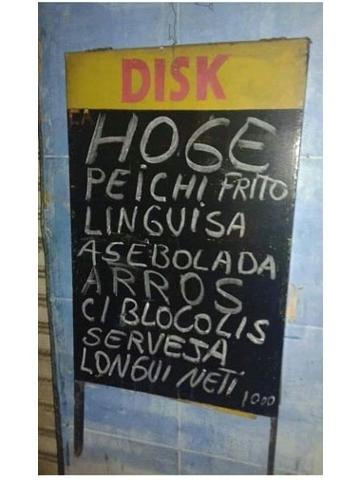 DISK
HOGE
PEICHI FRITO
LINGUISA
ASEBOLADA
ARROS
C/ BLOCOLIS
SERVEJA
LONGUI NETI 1000